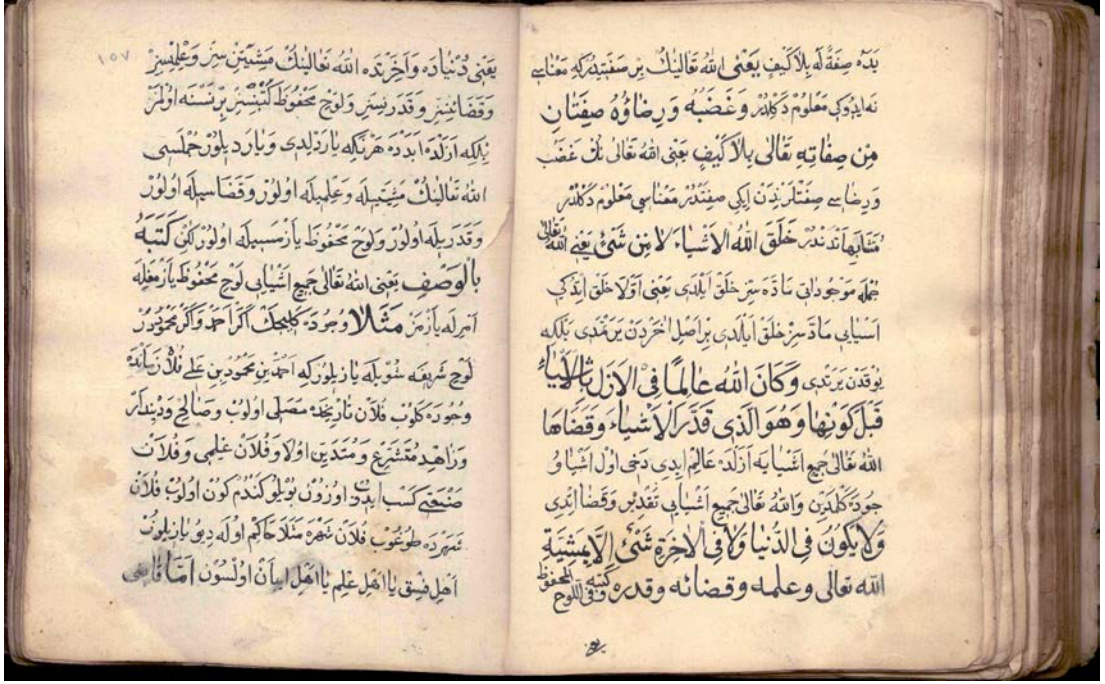 يده صفة له بلا كيف يعنى الله تعالينك بر صفتيدر كه معناسى
نه ايدوكى معلوم دكلدر وغضبه ورضاؤه صفتان
من صفاته تعالى بلا كيف يعنى الله تعالى نك غضب
ورضاسى صفتلرندن ايكى صفتدر معناسى معلوم دكلدر
متشابهاتدندر خلق الله الاشياء لا من شئ يعنى الله تعالى
جمله موجوداتى ماده سز خلق ايلدى يعنى اولا خلق ايتدكى
اشيايى ماده سز خلق ايلدى بر اصل اخردن يرتمدى بلكه
يوقدن يرتدى وكان الله عالما فى الازل بالاشياء
قبل كونها وهو الذى قدر الاشياء وقضاها
الله تعالى جميع اشيايه ازلده عالم ايدى دخى اول اشيا و
جوده كلمدين والله تعالى جميع اشيايى تقدير وقضا اتدى
ولا يكون فى الدنيا ولا فى الاخرة شئ الا بمشية
الله تعالى وعلمه وقضائه وقدره وكتبه فى اللوح المحفوظ
١٥٧
يعنى دنياده واخرتده الله تعالينك مشيتنسز وعلمنسز
وقضاسنسز وقدرنسز ولوح محفوظ كتبنسز بر نسنه اولمز
بلكه ازلده ابدده هرنكه ياردلدى وياردیلور جملسى
الله تعالينك مشيتيله وعلميله اولور وقضاسيله اولور
وقدريله اولور ولوح محفوظ يازمسيله اولور لكن كتبه
بالوصف يعنى الله تعالى جميع اشيايى لوح محفوظ يازمغله
امرله يازمز مثلا وجوده كلیجك اكر احمد واكر محموددر
لوح شريفه شويله يازيلور كه احمد بن محمود بن على فلان زمانده
وجوده كلوب فلان تاريخده مصلى اولوب وصالح ودیندار
وزاهد متشرع ومتدين اولا وفلان علمى وفلان
صنعتى كسب ايدوب اوزون بويلو كندم كون اولوب فلان
شهرده طوغوب فلان شهره مثلا حاكم اوله ديو يازيلور
اهل فسق يا اهل علم يا اهل ايمان اولسون اما قاضى